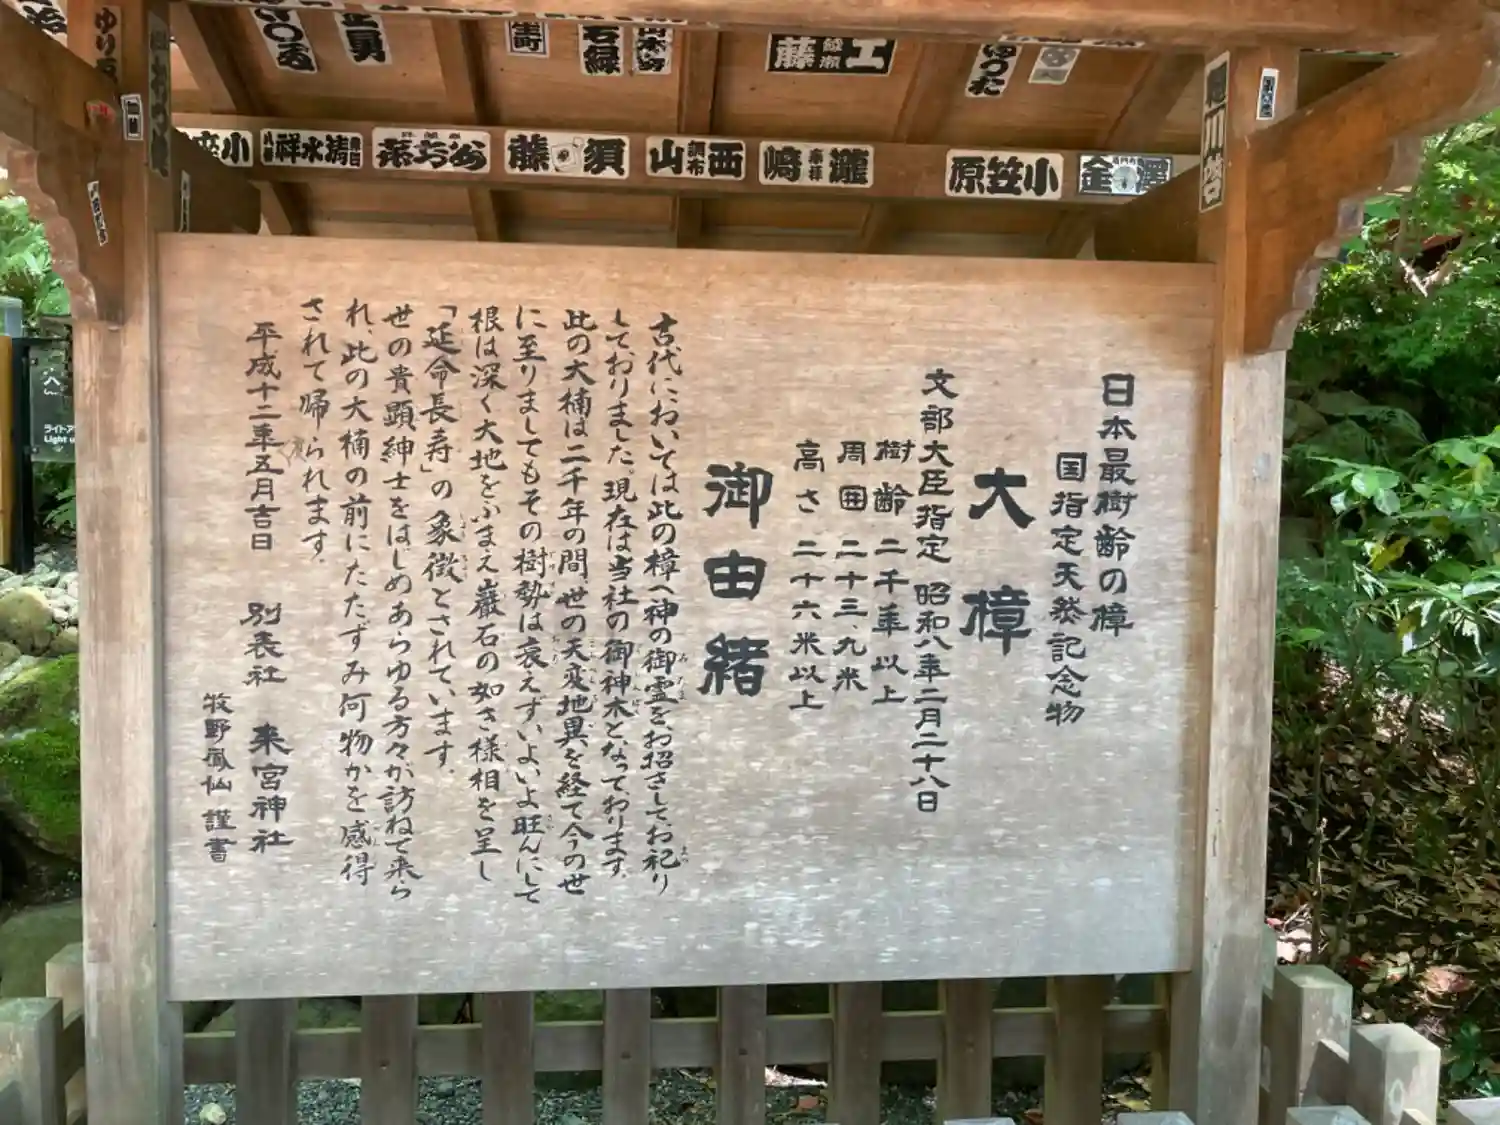 日本最樹齢の樟
国指定天然記念物
大樟
文部大臣指定 昭和八年二月二十八日
樹齢 二千年以上
周囲 二十三、九米
高さ 二十六米以上
御由緒
古代においては此の樟へ神の御霊をお招きしてお祀り
しておりました。現在は当社の御神木となっております。
此の大楠は二千年の間、世の天変地異を経て今の世
に至りましてもその樹勢は衰えずいよいよ旺んにして
根は深く大地をふまえ巌石の如き様相を呈し
「延命長寿」の象徴とされています。
世の貴顕紳士をはじめあらゆる方々が訪ねて来ら
れ、此の大楠の前にたたずみ何物かを感得
されて帰られます。
平成十二年五月吉日 別表社 来宮神社
牧野鳳仙 謹書
小座
清水祥
須藤
西山
調布
瀧嵜
小笠原
澤金
工藤
ライトア
Light u